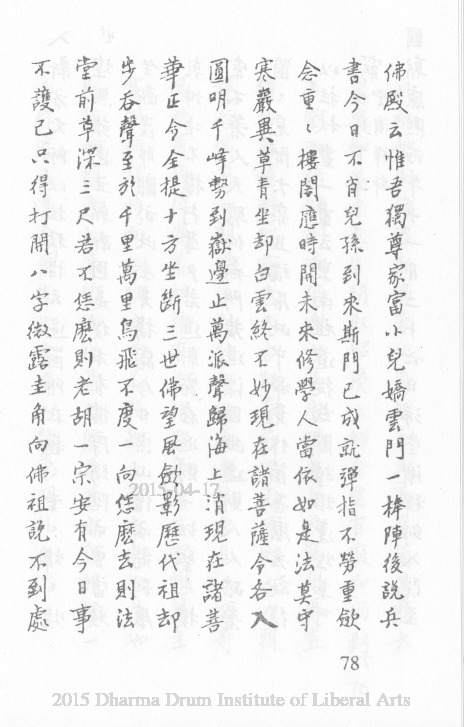 佛殿云惟吾獨尊家富小兒嬌雲門一棒陣後說兵
書今日不肖兒孫到來斯門已成就彈指不勞重歛
念重〻樓閣應時開未來修學人當依如是法莫守
寒巖異草青坐却白雲終不妙現在諸菩薩今各入
圓明千峰勢到嶽邊止萬派聲歸海上消現在諸菩
華正令全提十方坐斷三世佛望風歛影歷代祖却
步吞聲至於千里萬里鳥飛不度一向恁麼去則法
堂前草深三尺若不恁麼則老胡一宗安有今日事
不護已只得打開八字微露圭角向佛祖說不到處
78
2015-04-17
2015 Dharma Drum Institute of Liberal Arts